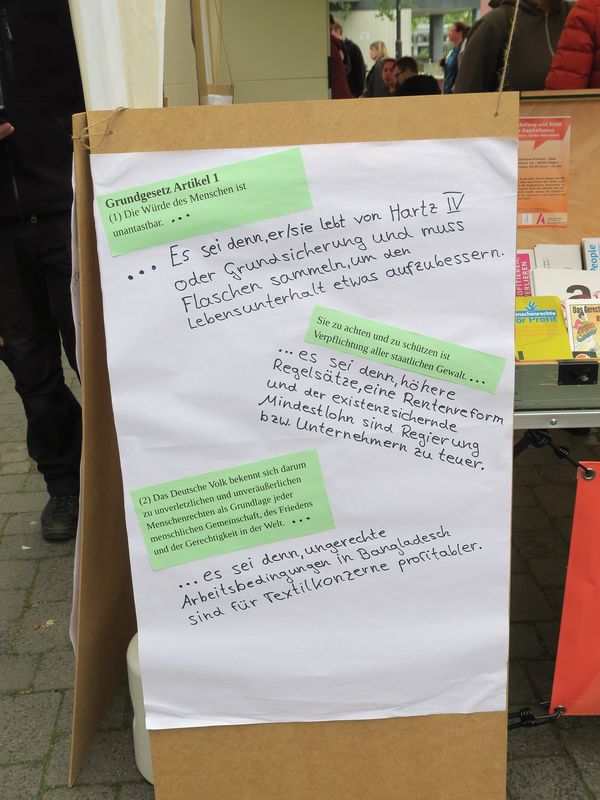 Grundgesetz Artikel 1
(1) Die Würde des Menschen ist
unantastbar. ...
.... Es sei denn, er/sie lebt von Hartz IV
oder Grundsicherung und muss
Flaschen sammeln, um den
Lebensunterhalt etwas aufzubessern.
Sie zu achten und zu schützen ist
Verpflichtung aller staatlichen Gewalt. ...
...es sei denn, höhere
Regelsätze, eine Rentenreform
und der existenzsichernde
Mindestlohn sind Regierung
bzw. Unternehmern zu teuer.
(2) Das Deutsche Volk bekennt sich darum
zu unverletzlichen und unveräußerlichen
Menschenrechten als Grundlage jeder
menschlichen Gemeinschaft, des Friedens
und der Gerechtigkeit in der Welt. ...
...es sei denn, ungerechte
Arbeitsbedingungen in Bangladesch
sind für Textilkonzerne profitabler.
Anfang und Ende
Kapitalismus
People
a
or Profit